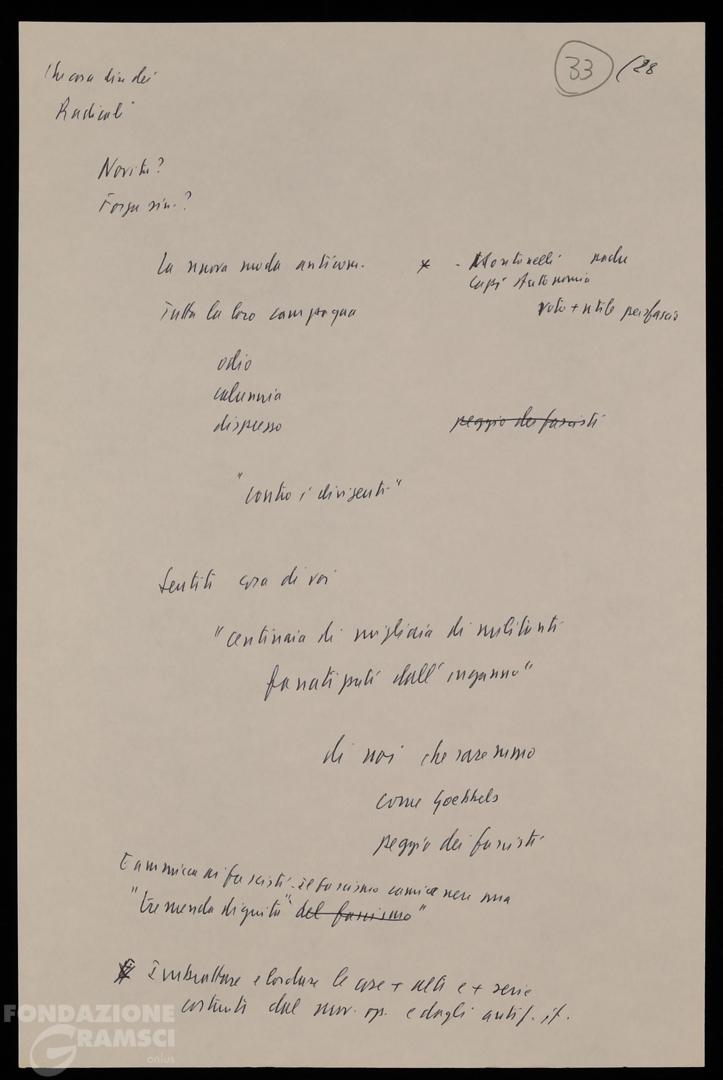 33 /28
Che cosa dire dei
Radicali
Novità?
Forza sin.?
La nuova moda anticom.
* - Montanelli
capi Autonomia
voto + utile per fascio
Tutta la loro campagna
odio
calunnia
disprezzo
peggio dei fascisti
"contro i dirigenti"
Sentiti cosa di voi
"centinaia di migliaia di militanti
fanatizzati dall'inganno"
di noi che saremmo
come Goebbels
peggio dei fascisti
E ammicca ai fascisti. il fascismo camicie nere una
"tremenda dignità" del fascismo"
* Imbrattare e lordare le cose + alti e + serie
costruiti dal mov. op. e dagli antif. it.
FONDAZIONE
GRAMSCI
onlus